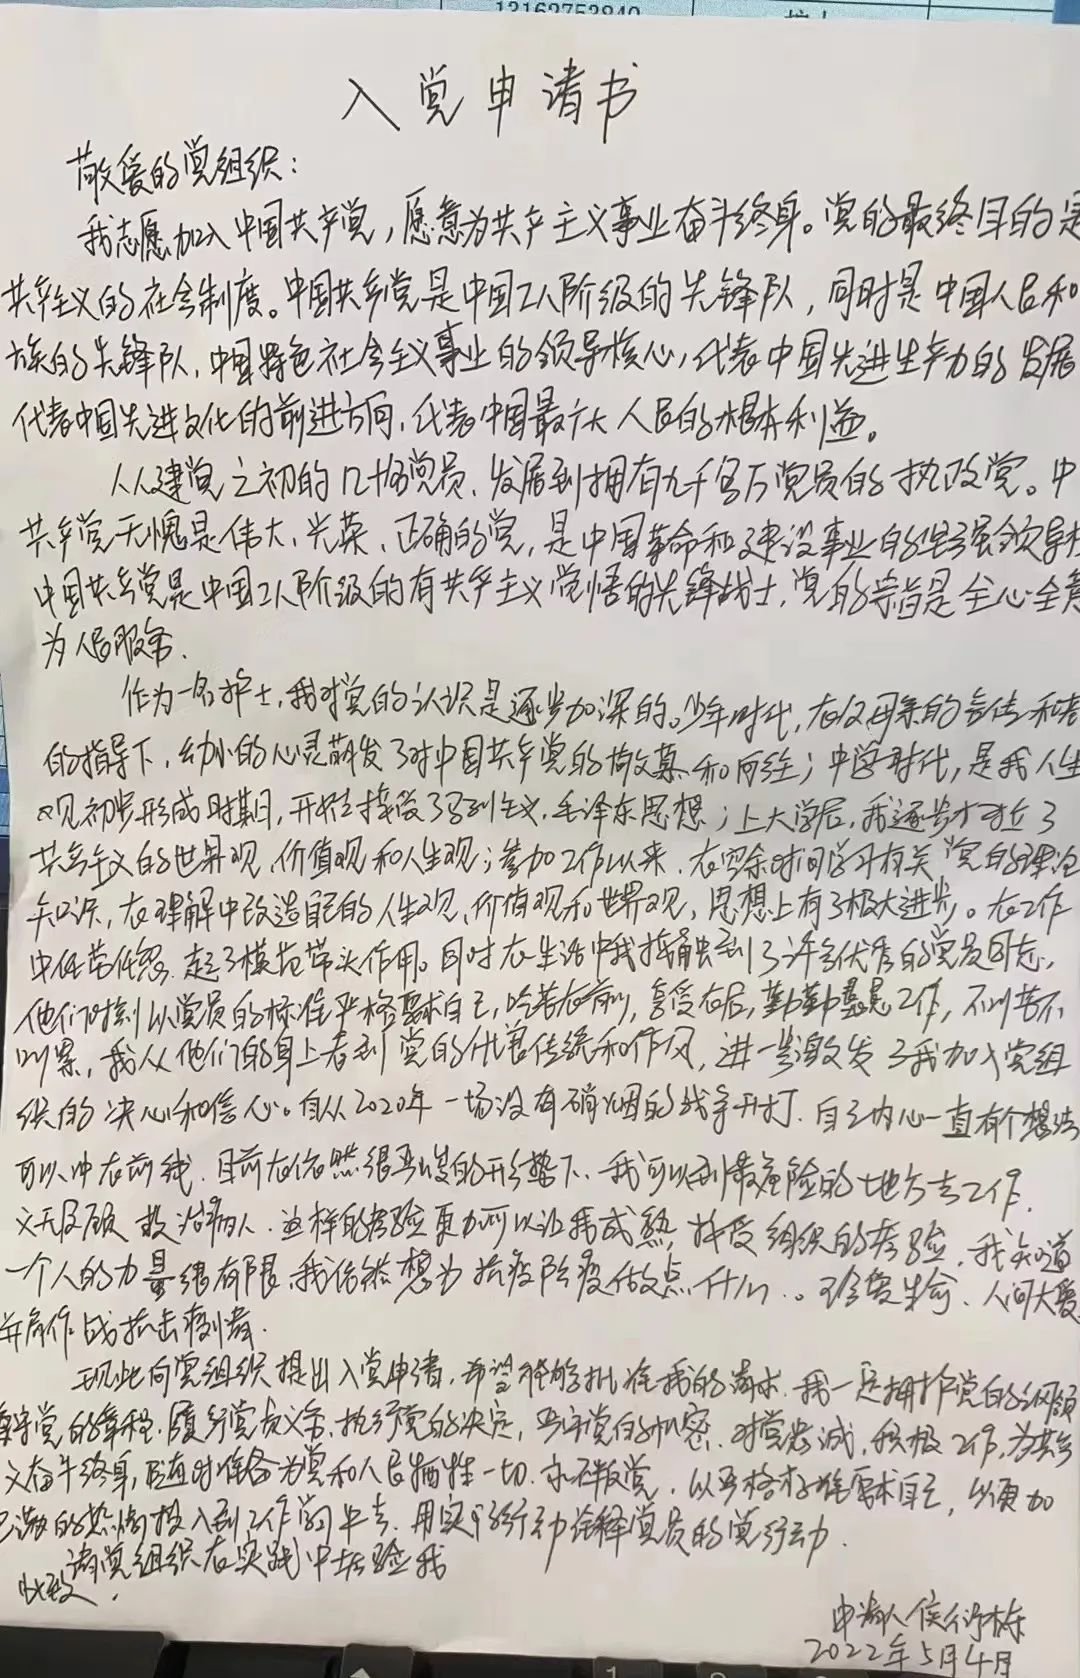 13162753840
入党申请书
敬爱的党组织：
我志愿加入中国共产党，愿意为共产主义事业奋斗终身。党的最终目的是
共产主义的社会制度。中国共产党是中国工人阶级的先锋队，同时是中国人民和
族的先锋队，中国特色社会主义事业的领导核心，代表中国先进生产力的发展
代表中国先进文化的前进方向，代表中国最广大人民的根本利益。
从建党之初的几十名党员，发展到拥有九千多万党员的执政党。中
共产党无愧是伟大、光荣、正确的党，是中国革命和建设事业的坚强领导核
中国共产党是中国工人阶级的有共产主义觉悟的先锋战士，党的宗旨是全心全意
为人民服务.
作为一名护士，我对党的认识是逐步加深的。少年时代，在父母亲的言传和老
的指导下，幼小的心灵萌发了对中国共产党的敬慕和向往；中学时代，是我人生
观初步形成时期，开始接受了马列主义、毛泽东思想；上大学后，我逐步树立了
共产主义的世界观、价值观和人生观；参加工作以来，在空余时间学习有关党的理论
知识，在理解中改造自己的人生观、价值观和世界观，思想上有了极大进步。在工作
中任劳任怨，起了模范带头作用。同时在生活中我接触到了许多优秀的党员同志，
他们时刻以党员的标准严格要求自己，吃苦在前，享受在后，勤勤恳恳工作，不叫苦不
叫累，我从他们的身上看到党的优良传统和作风，进一步激发了我加入党组
织的决心和信心。自从2020年一场没有硝烟的战争开打，自己内心一直有个想法
可以冲在前线，目前在依然很严峻的形势下，我可以到最危险的地方去工作，
义无反顾救治病人，这样的考验更加可以让我成熟，接受组织的考验，我知道
一个人的力量很有限，我依然想为抗疫防疫做点什么。珍爱生命、人间大爱
并肩作战抗击病毒.
现此向党组织提出入党申请，希望能够批准我的请求，我一定拥护党的纲领
遵守党的章程，履行党员义务，执行党的决定，严守党的机密，对党忠诚，积极工作，为共产
义奋斗终身，随时准备为党和人民牺牲一切，永不叛党，以严格标准要求自己，以更加
饱满的热情投入到工作学习中去，用实际行动诠释党员的党行动.
请党组织在实践中考验我
此致，
申请人侯衍栋
2022年5月4日